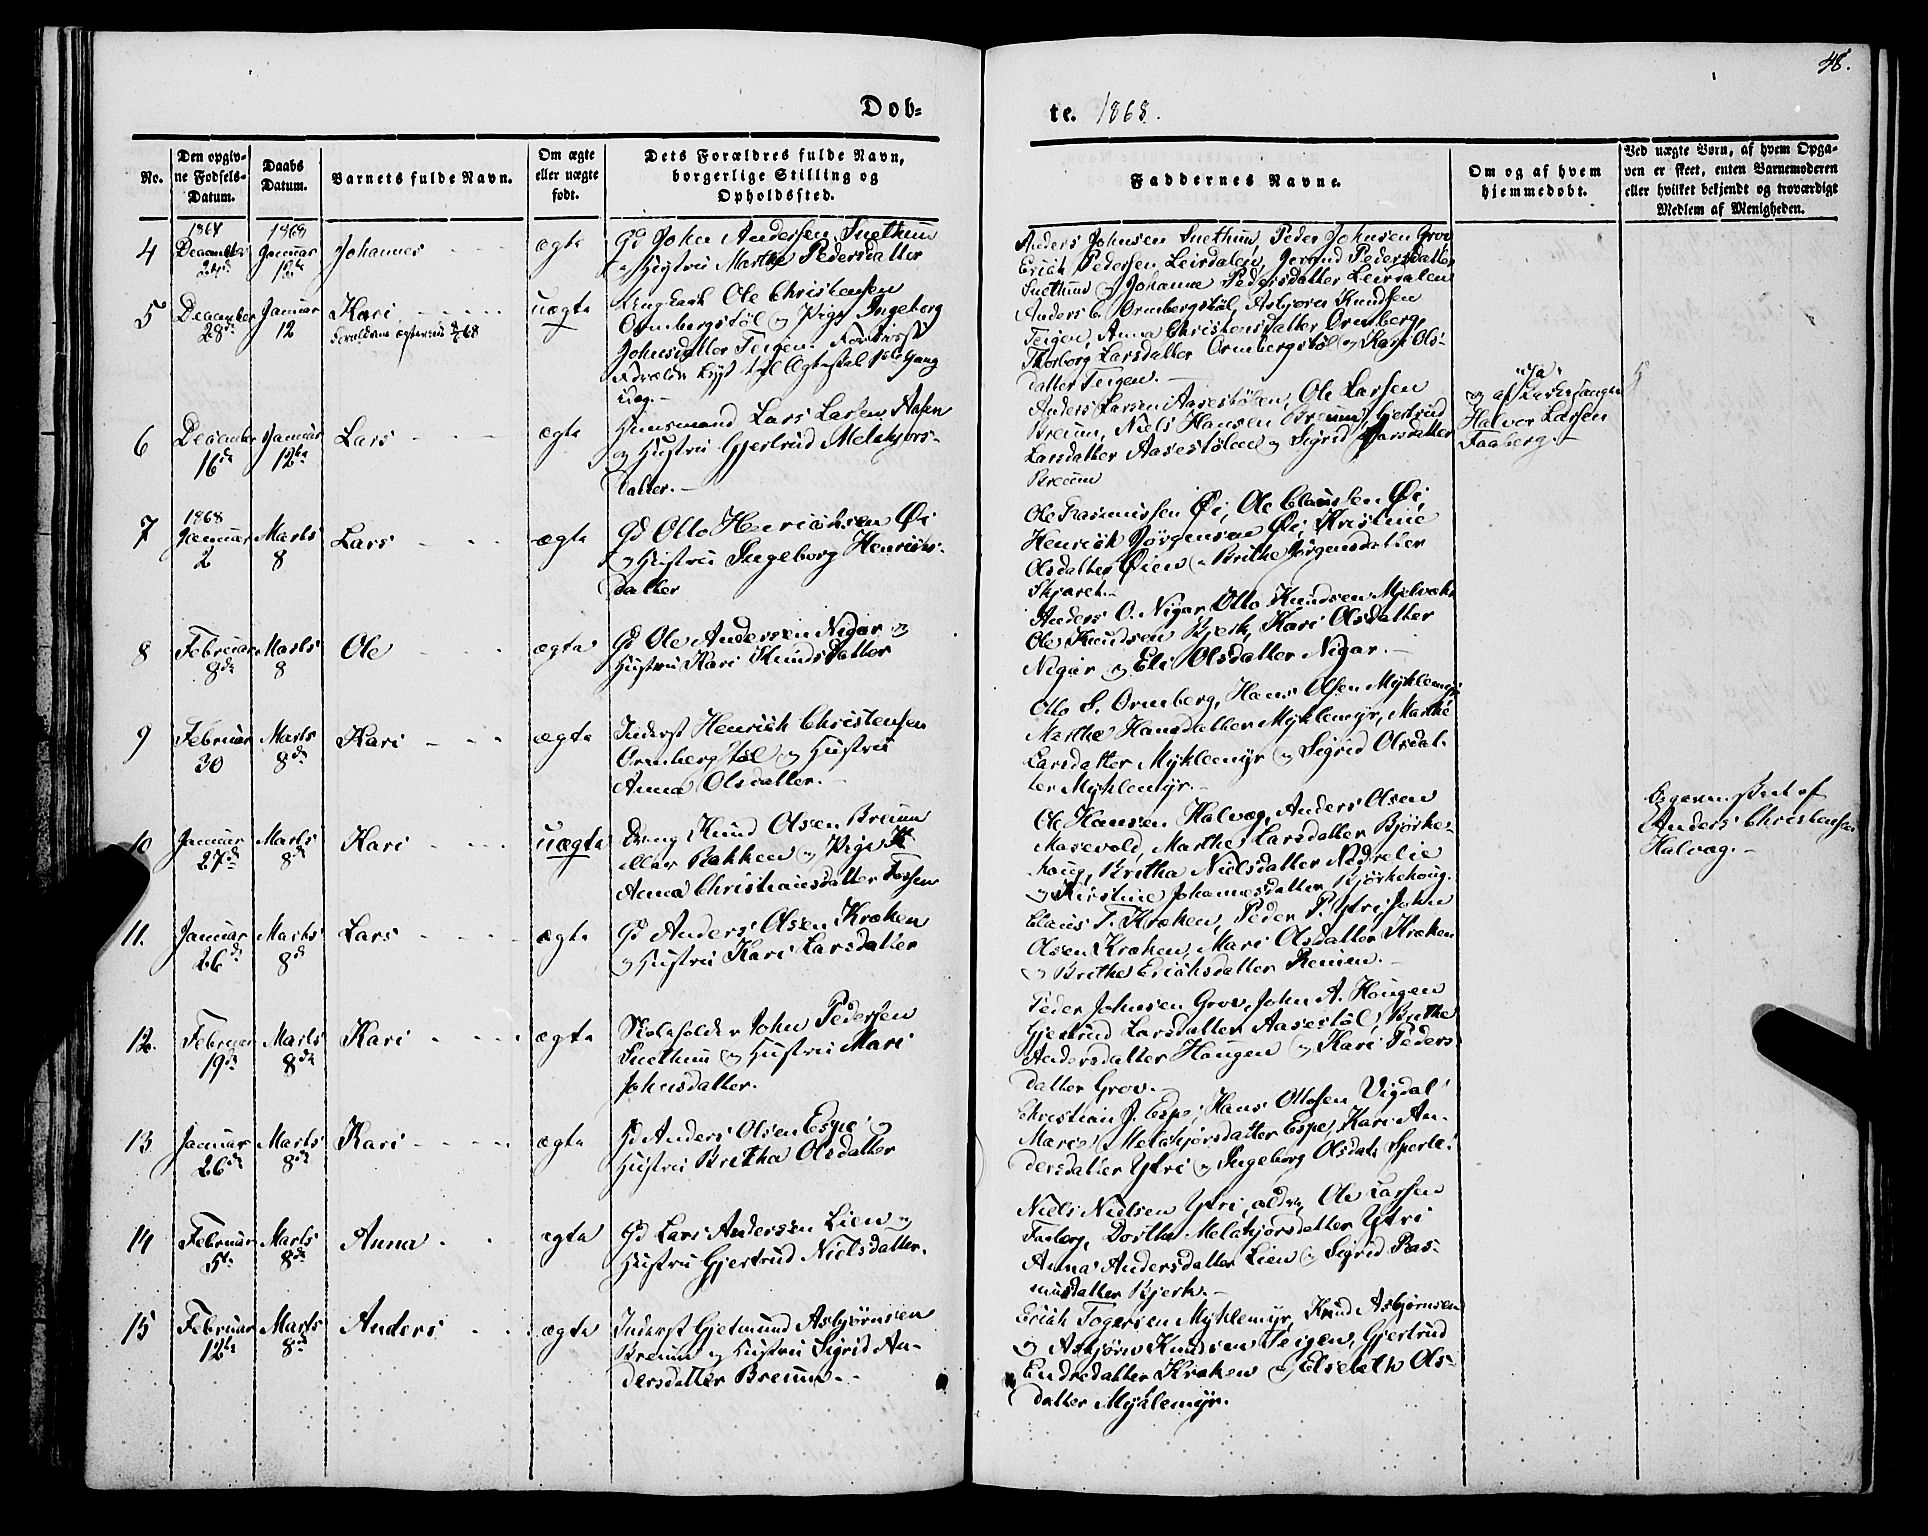 48.
Dob-
te. 1868.
No.
Den opgiv-
ne Fødsels-
Datum.
Daabs
Datum.
Barnets fulde Navn.
Om ægte
eller uægte
født.
Dets Forældres fulde Navn,
borgerlige Stilling og
Opholdssted.
Faddernes Navne.
Om og af hvem
hjemmedøbt.
Ved uægte Børn, af hvem Opga-
ven er skeet, enten Barnemoderen
eller hvilket bekjendt og troværdigt
Medlem af Menigheden.
4
1867
December
24de
1868
Januar
12te
Johannes
ægte
Gd John Andersen Snethun
og Hustru Marthe Pedersdatter
Anders Johnsen Snethun, Peder Johnsen Grov
Erich Pedersen Leirdalen, Pedersdatter
Snethun og Johanne Pedersdatter Leirdalen
5
December
28de
Januar
12
Kari
uægte
Ungkarl Ole Christensen
Ormbergstøl og Pige Ingeborg
Johnsdatter Teigen.
Anders C. Ormbergstøl, Asbjørn Knudsen
Teigen, Anna Christensdatter Ormberg,
Thorborg Larsdatter Ormbergstøl og Kari Ols-
datter Teigen.
6
December
16de
Januar
12te
Lars
ægte
Huusmand Lars Larsen Aasen
og Hustru Gjertrud Melchjors-
datter.
Anders Larsen Aasestølen, Ole Larsen
Breum, Niels Hansen Breum, Gjertrud
Larsdatter Aasestølen og Sigrid Larsdatter
Breum
"Ja"
og af Kirkesanger
Halvor Larsen
Faaberg.
7
1868
Januar
2
Marts
8
Lars
ægte
Gd Otto Henrichsen Øi
og Hustru Ingeborg Henrichs-
datter
Ole Rasmussen Øi, Ole Claussen Øi,
Henrich Jørgensen Øi, Kristine
Olsdatter Øien og Brithe Jørgensdatter
Skjæret.
8
Februar
8de
Marts
8
Ole
ægte
Gd Ole Andersen Nigar og
Hustru Kari Knudsdatter
Anders O. Nigar, Otto Knudsen Mjelvek
Ole Knudsen Bjerk, Kari Olsdatter
Nigar og Eli Olsdatter Nigar.
9
Februar
30
Marts
8de
Kari
ægte
Inderst Henrich Christensen
Ormbergstøl og Hustru
Anna Olsdatter.
Otto S. Ormberg, Hans Olsen Myklemyr
Marthe Hansdatter Myklemyr, Marthe
Larsdatter Myklemyr og Sigrid Olsdat-
ter Myklemyr.
10
Januar
27de
Marts
8de
Kari
uægte
Dreng Knud Olsen Breum
eller Bakken og Pige
Anna Christiansdatter Fossen
Ole Hansen Halvæg, Anders Olsen
Masevold, Marthe Larsdatter Bjørke-
houg, Britha Nielsdatter Nedrelie
og Kirstine Johannesdatter Bjørkehoug.
Opgaven skeet af
Anders Christensen
Halvæg.
11.
Januar
26de
Marts
8de
Lars
ægte
Gd Anders Olsen Kroken
og Hustru Kari Larsdatter
Claus T. Kroken, Peder P. Ytri, John
Olsen Kroken, Mari Olsdatter Kroken
og Brithe Erichsdatter Reneen.
12.
Februar
19de
Marts
8de
Kari
ægte
Skoleholder John Pedersen
Snethun og Hustru Mari
Johnsdatter.
Peder Johnsen Grov, John A. Hougen
Gjertrud Larsdatter Aasestøl, Brithe
Andersdatter Hougen og Kari Peders-
datter Grov.
13
Januar
26de
Marts
8de
Kari
ægte
Gd Anders Olsen Espe og
Hustru Britha Olsdatter
Christian J. Espe, Hans Ottosen Vigdal
Mari Melchjorsdatter Espe, Kari An-
dersdatter Ytri og Ingeborg Olsdatr Sperle
14
Februar
5te
Marts
8de
Anna
ægte
Gd Lars Andersen Lien og
Hustru Gjertrud Nielsdatter.
Niels Nielsen Ytri, ældre, Ole Larsen
Faaberg, Dorthe Melchjorsdatter Ytri
Anna Andersdatter Lien og Sigrid Ras-
musdatter Bjerk.
15
Februar
12te
Marts
8de
Anders
ægte
Inderst Gjetmund Asbjørnsen
Breum og Hustru Sigrid An-
dersdatter Breum.
Erich Togersen Myklemyr, Knud Asbjørnsen
og Asbjørn Knudsen Teigen, Gjertrud
Endredatter Kroken og Elsebeth Ols-
datter Myklemyr.